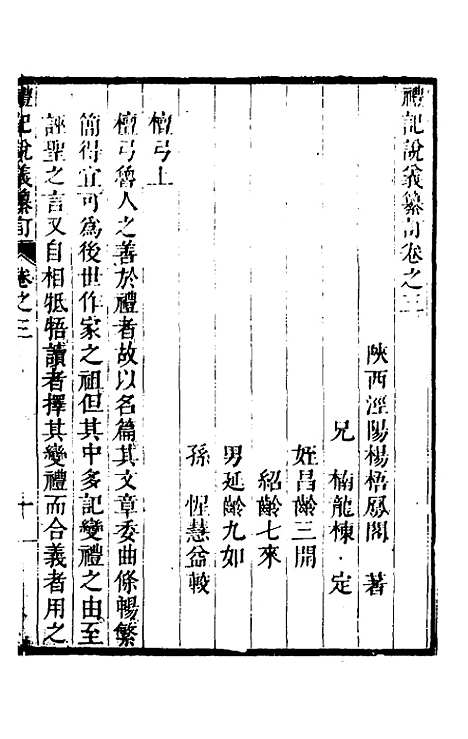 禮記說義纂訂卷之三
陝西涇陽楊梧鳳閣 著
兄 楠龍棟 定
姪昌齡三開
紹齡七來
男延齡九如
孫 惺慧益較
檀弓上
檀弓魯人之善於禮者故以名篇其文章委曲條暢繁
簡得宜可為後世作家之祖但其中多記變禮之由至
誣聖之言又自相牴牾讀者擇其變禮而合義者用之
禮記說義纂訂 卷之三